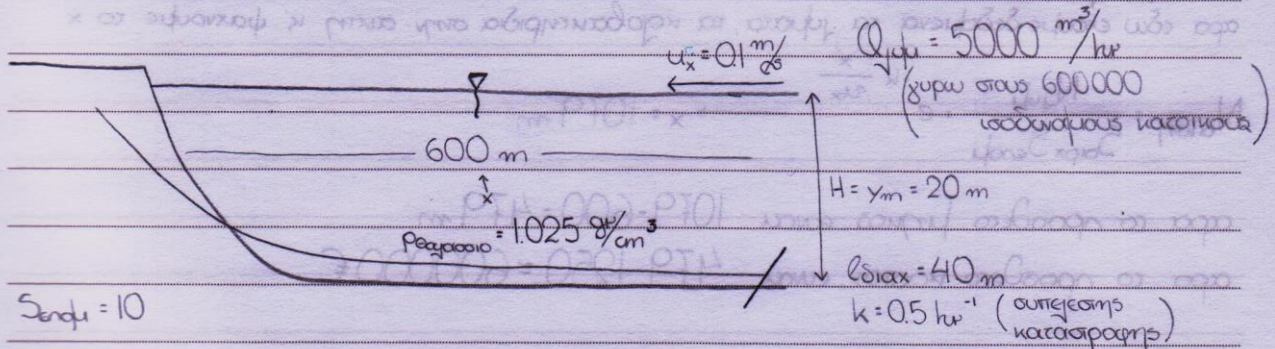 u_x = 0.1 m/s
Q_λυμ = 5000 m³/hr
(γυρω στους 600000
ισοδυναμους κατοικους)
600 m
x
H = y_m = 20 m
ρ_θαλασσιο = 1.025 gr/cm³
l_διαχ = 40 m
S_επιθυμ = 10
k = 0.5 hr⁻¹ (συντελεστης
καταστροφης)